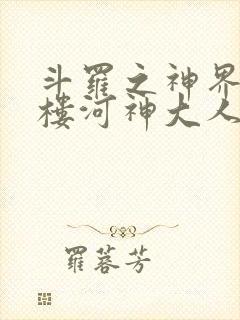 斗羅之神界
樓河神大人
羅蓉芳